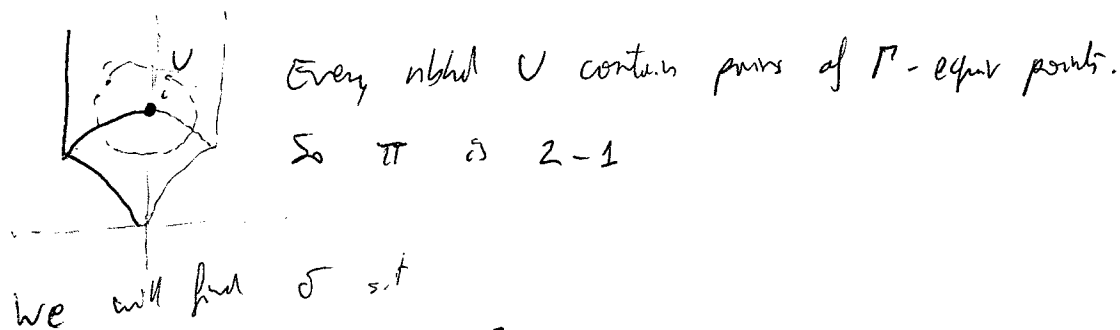 U
Every nbhd U contains pairs of Γ-equiv points.
i
So π is 2-1
We will find σ s.t